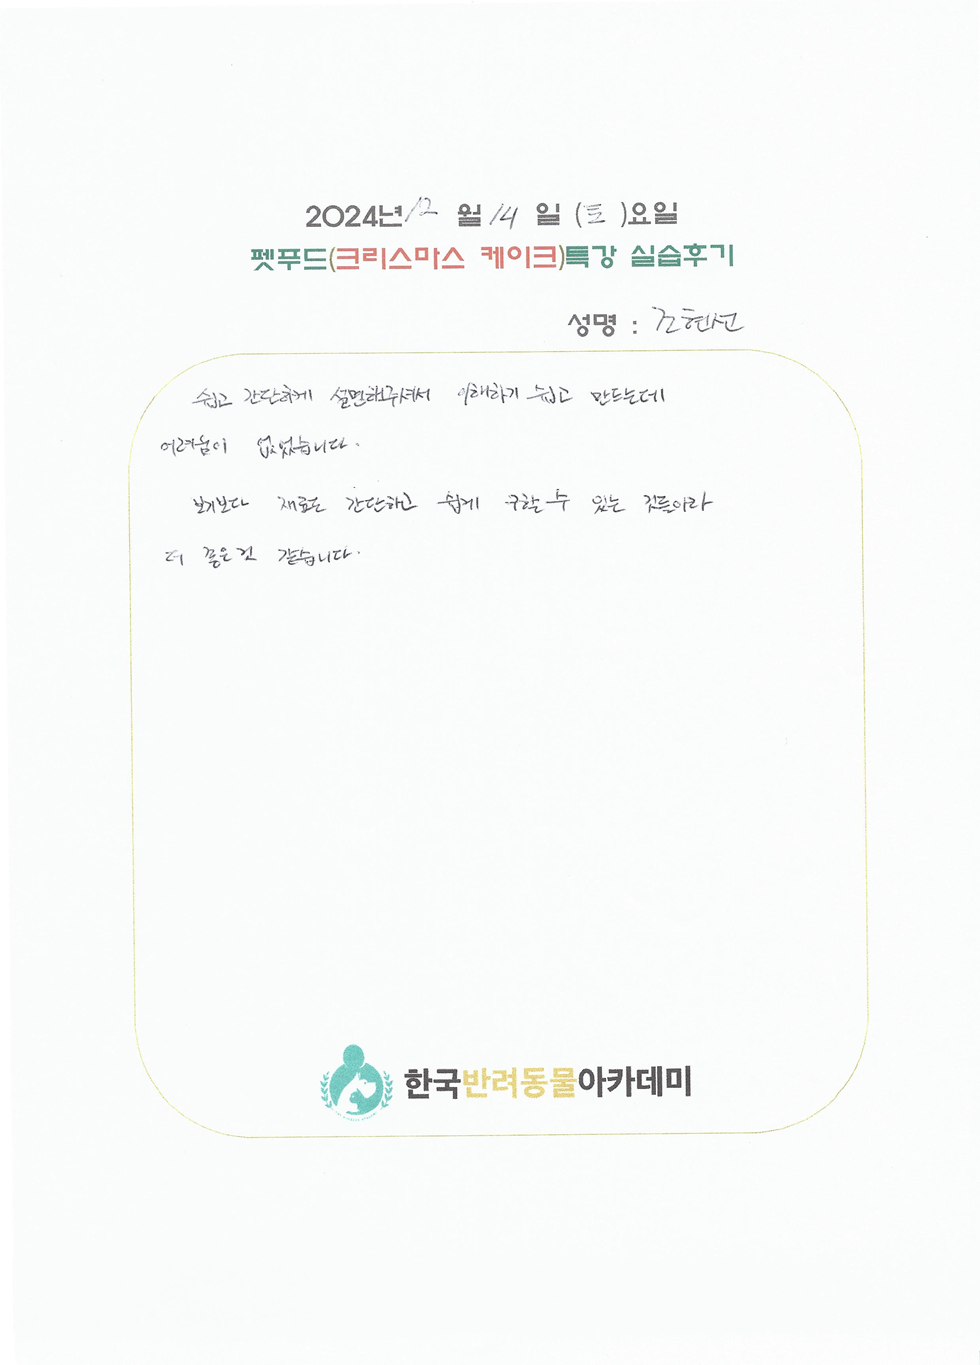 2024년 12 월 14 일 (토)요일
펫푸드(크리스마스 케이크)특강 실습후기
성명 : 조현선
쉽고 간단하게 설명해주셔서 이해하기 쉽고 만드는데
어려움이 없었습니다.
보기보다 재료도 간단하고 쉽게 구할 수 있는 것들이라
더 좋은것 같습니다.
한국반려동물아카데미